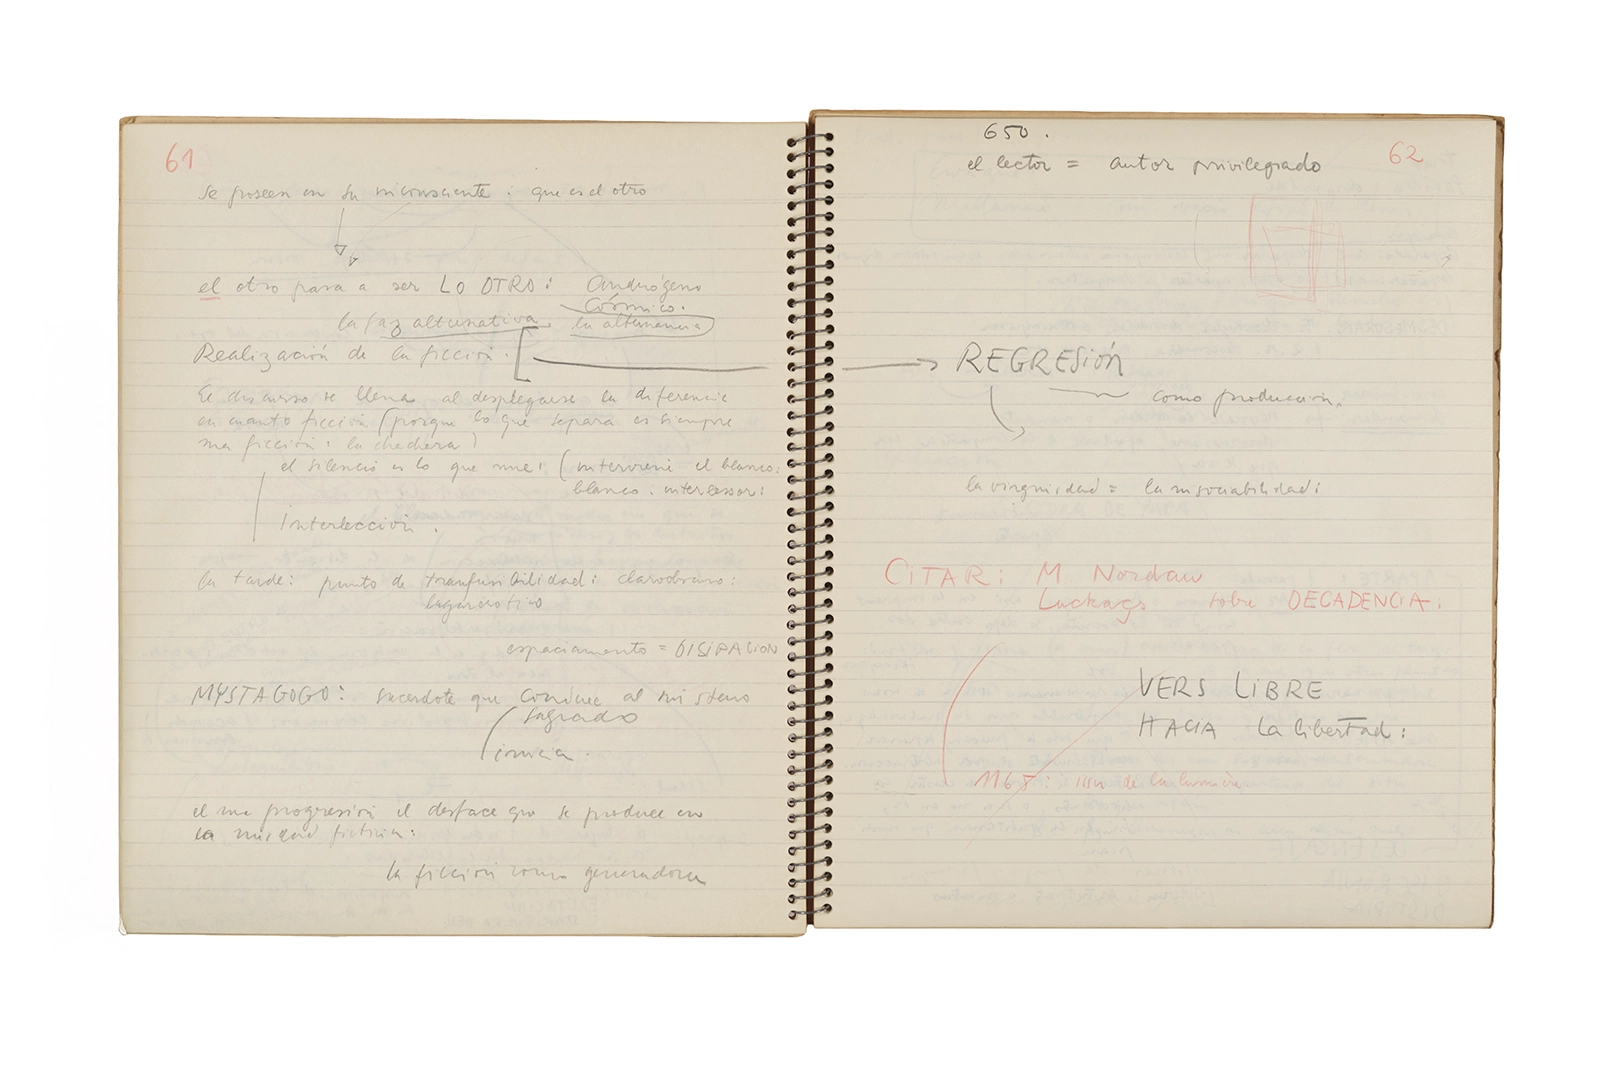 61
se poseen en su inconsciente : que es el otro
el otro pasa a ser LO OTRO : Andrógeno
Cósmico.
la faz alternativa la alternancia
Realización de la ficción .
El discurso se llena al desplegarse la diferencia
en cuanto ficción (porque lo que separa es siempre
una ficción : la
el silencio es lo que une : (interviene el blanco :
blanco : intercessor :
Interlección .
la tarde : punto de : claroobscuro :
espaciamiento = DISIPACION
MYSTAGOGO : sacerdote que conduce al misterio
sagrado
inicia .
el una progresión el desface que se produce en
la misma
la ficción como generadora
650 .
62
el lector = autor privilegiado
REGRESIÓN
como producción.
la virginidad = la insociabilidad :
CITAR : M Nordau
Luckags sobre DECADENCIA :
VERS LIBRE
HACIA la libertad :
1168 : de la